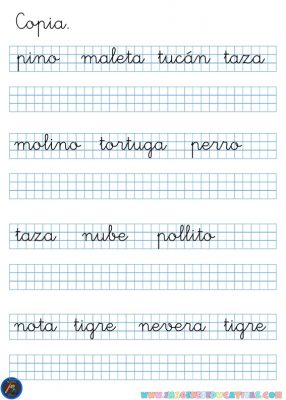 Copia.
pino maleta tucán taza
molino tortuga perro
taza nube pollito
nota tigre nevera tigre
WWW.IMAGENESEDUCATIVAS.COM